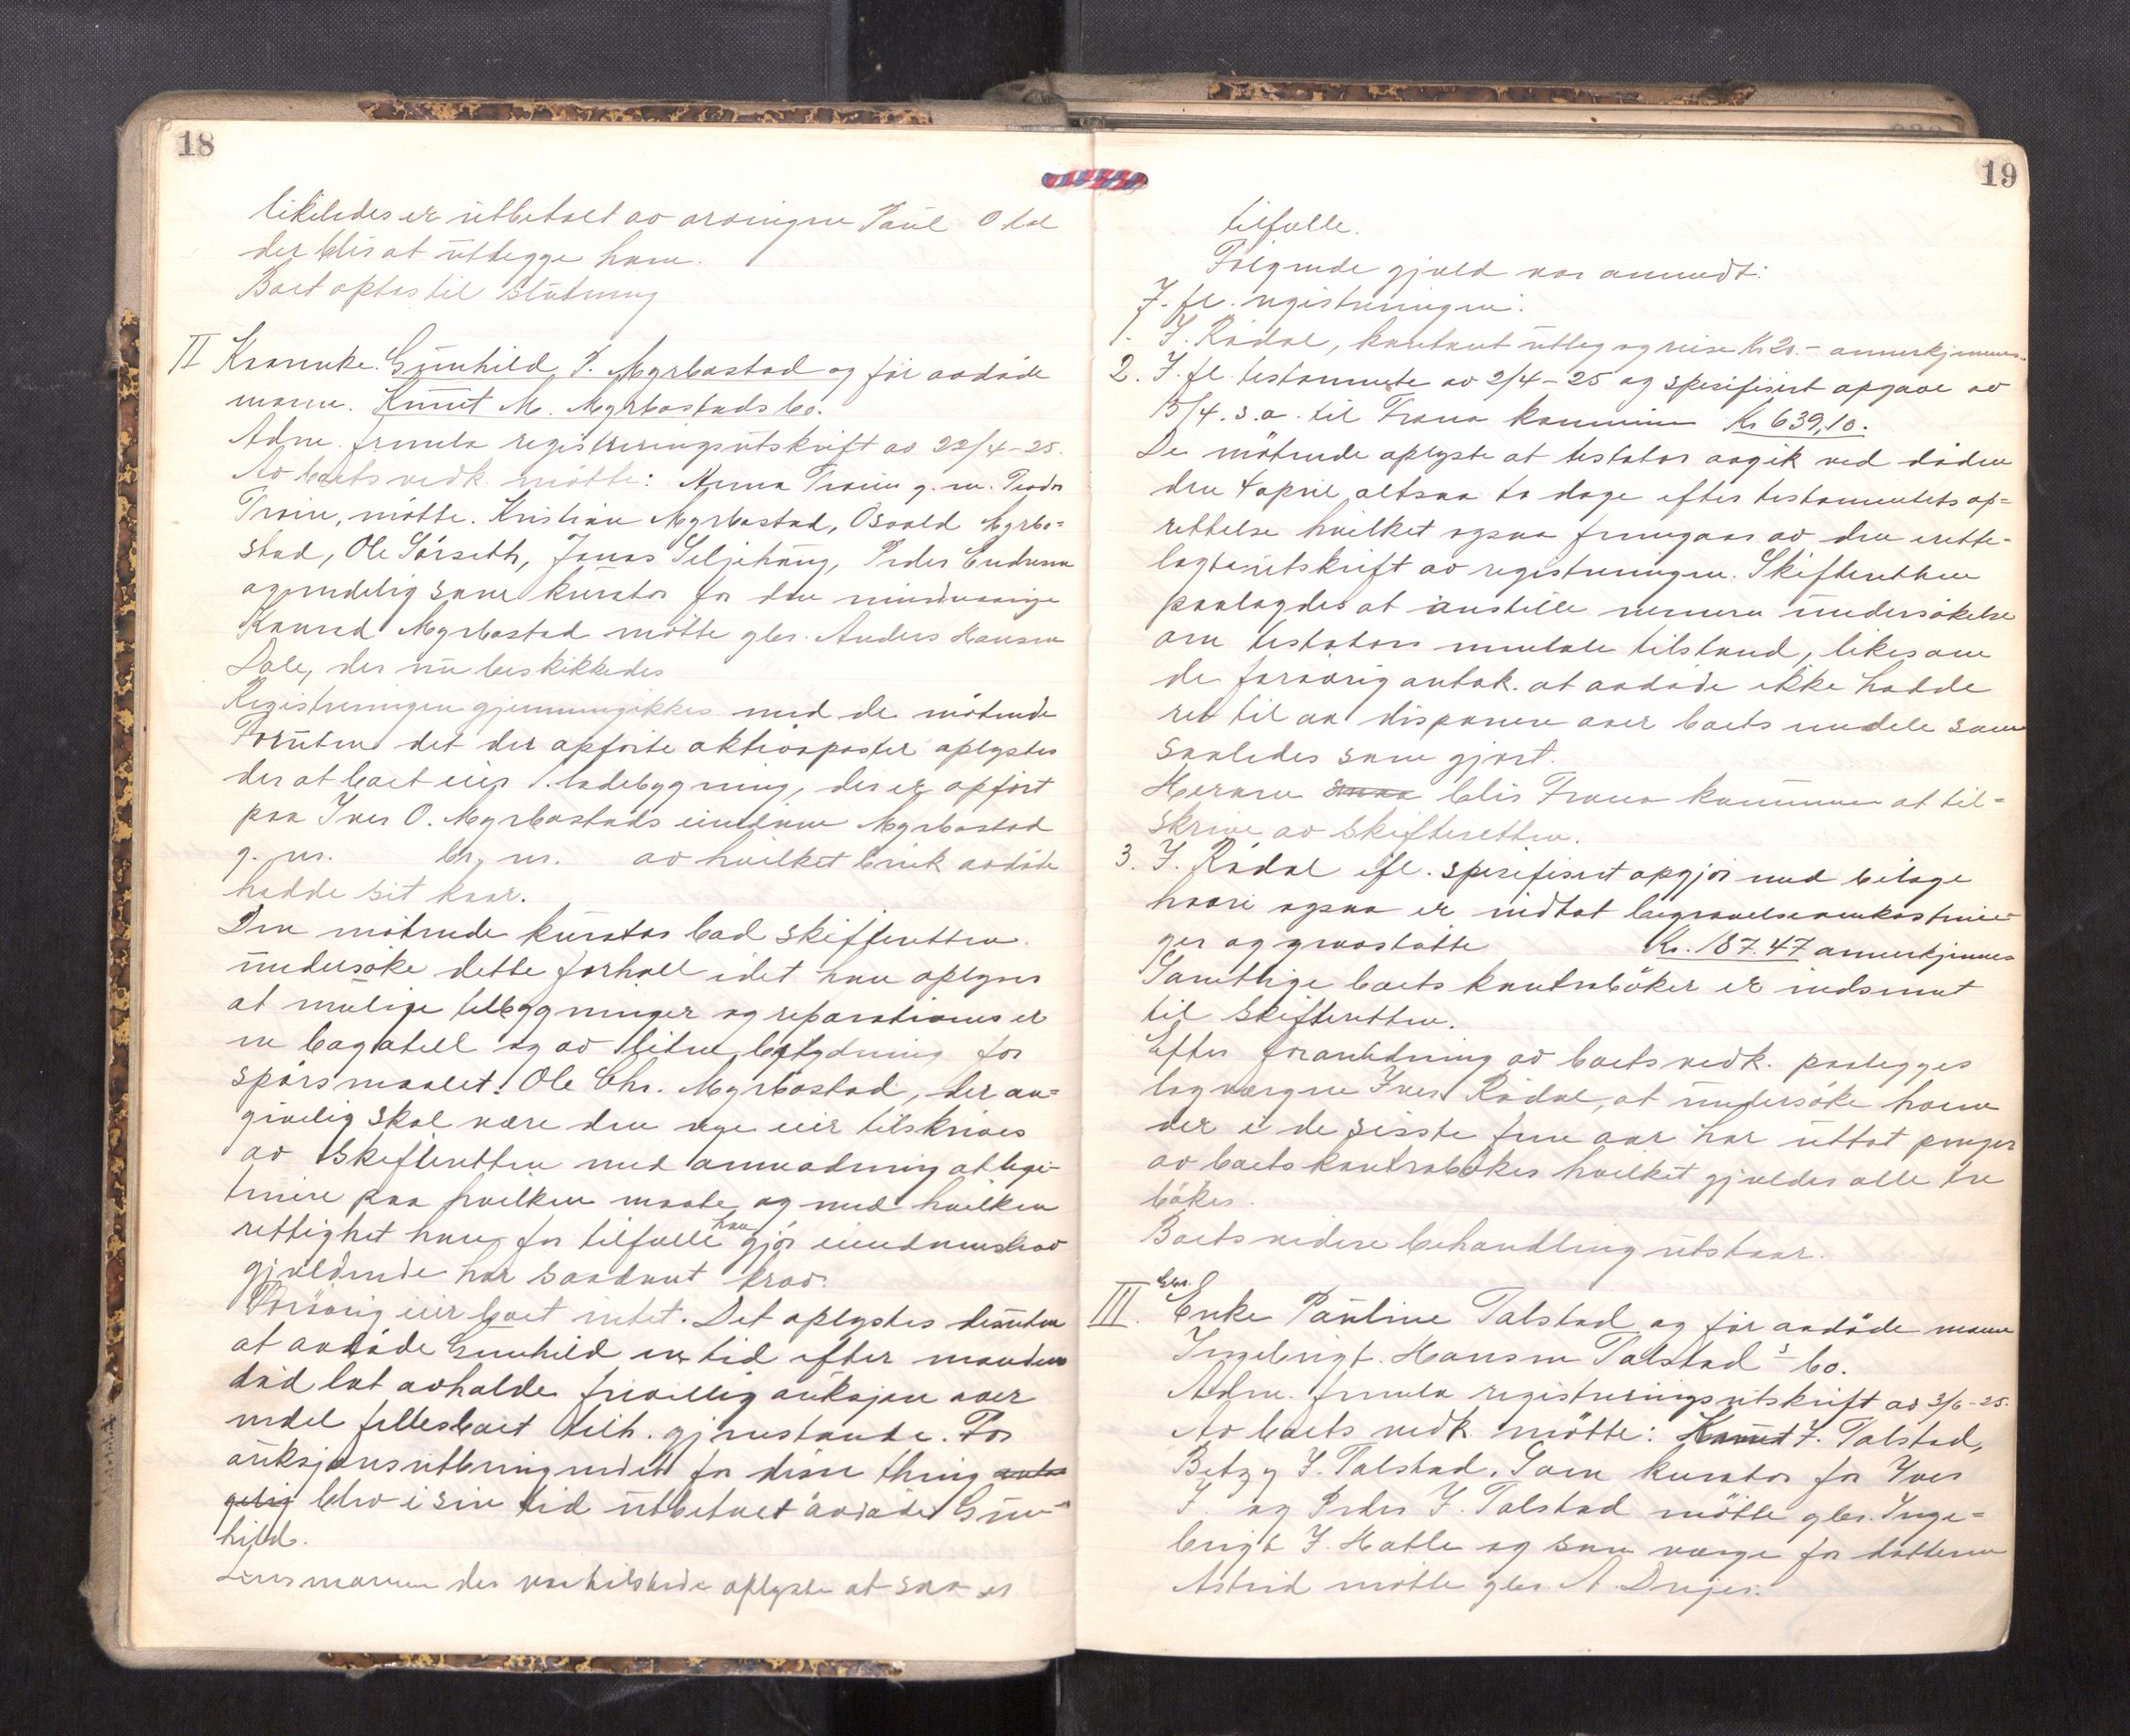 18
likeledes er utbetalt av arvingen Paul O tal
der blir at utlegge ham.
Boet optas til slutning
II Kaarenke. Gunhild P. Myrbostad og før avdøde
mann. Knut M. Myrbostads bo.
Adm. fremla registreringsutskrift av 22/4-25.
Av boets vedk. møtte: Anna g. m. Peder
møtte. Kristian Myrbostad, Osvald Myrbo=
stad, Ole Sørseth, Jonas Seljehaug, Peder Endresen
og endelig som kurator for den mindreaarige
Konrad Myrbostad møtte gbr. Anders Hansen
Dale, der nu beskikkedes
Registreringen gjennemgikkes med de møtende
Foruten det der opførte aktivaposter oplystes
der at boet eier 1. ladebygning, der er opført
paa Iver O. Myrbostads eiendom Myrbostad
g. nr. br. nr. av hvilket bruk avdøde
hadde sit kaar.
Den møtende kurator bad skifteretten
undersøke dette forhold idet han oplyser
at mulige tilbygninger og reparationer er
en bagatell og av liten betydning for
spørsmaalet. Ole Chr. Myrbostad, der an=
givelig skal være den nye eier tilskrives
av skifteretten med anmodning at legi-
timere paa hvilken maate og med hvilken
rettighet han for tilfelle han gjør eiendomskrav
gjeldende har saadant krav.
Forøvrig eier boet intet. Det oplystes desuten
at avdøde Gunhild en tid efter mandens
død lot avholde frivillig auksjon over
endel fellesboet tilh. gjenstande. For
auksjonsutbringendet for disse thing
blev i sin tid utbetalt avdøde Gun=
hild.
Lensmannen der var tilstede oplyste at saa er
19
tilfelle.
Følgende gjeld var anmeldt:
I. fl. registreringen:
1. I. Rødal, kontant utleg og reise Kr 20.- annerkjennes.
2. I. fl. testamente av 2/4-25 og spesifisert opgave av
15/4. s.a. til Fræna kommune Kr 639,10.
De møtende oplyste at testator avgik ved døden
den 4 april altsaa to dage efter testamentets op=
rettelse hvilket ogsaa fremgaar av den rette-
lagte utskrift av registreringen. Skifteretten
paalagdes at anstille nærmere undersøkelse
om testators mentale tilstand, likesom
de forøvrig antok. at avdøde ikke hadde
ret til aa disponere over boets midele som
saaledes som gjort.
Herom blir Fræna kommune at til=
skrive av skifteretten.
3. I. Rødal ifl. spesifisert opgjør med bilage
hvori ogsaa er indtat begravelseomkostnin=
ger og gravstøtte Kr. 187.47 annerkjennes
Samtlige boets kontrabøker er indsendt
til skifteretten.
Efter foranledning av boets vedk. paalegges
lagvergen Iver Rødal, at undersøke hvem
der i de sisste fem aar har uttat penger
av boets kontrabøker hvilket gjelder alle tre
bøker.
Boets videre behandling utstaar.
III. Gbr. Enke Pauline Talstad og før avdøde mann
Ingebrigt Hansen Talstad s bo.
Adm. fremla registreringsutskrift av 3/6-25.
Av boets vedk. møtte: Knut I. Talstad,
Betzy I. Talstad. Som kurator for Iver
I. og Peder I. Talstad møtte gbr. Inge=
brigt I. Hatle og som verge for datteren
Astrid møtte gbr. A. Drejer.